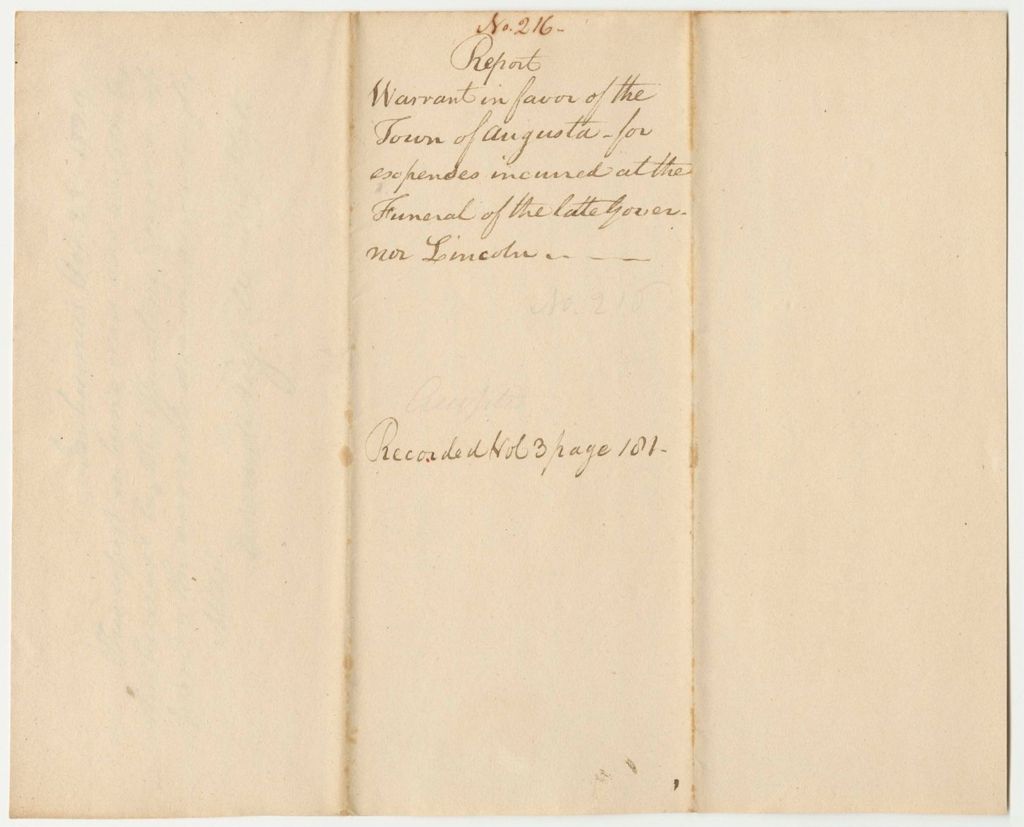 No. 216-
Report
Warrant in favor of the
Town of Augusta - for
expenses incurred at the
Funeral of the late Gover-
nor Lincoln
No. 216
Accepted
Recorded Vol 3 page 181-